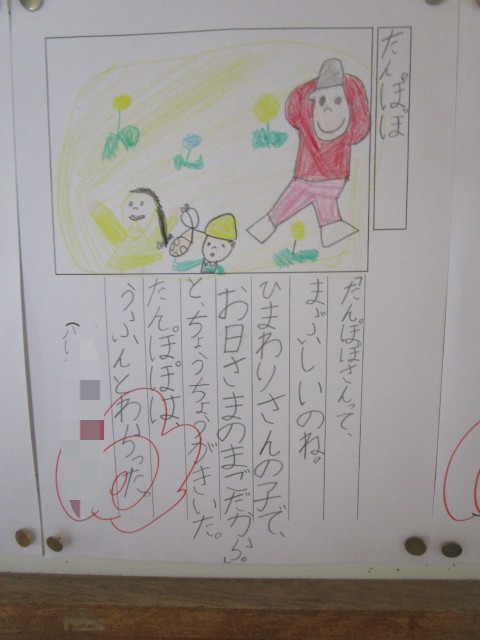 たんぽぽ
「たんぽぽさんって、
まぶしいのね。
ひまわりさんの子で、
お日さまのまごだから。」
と、ちょうちょうがきいた。
たんぽぽは、
うふんとわらった。